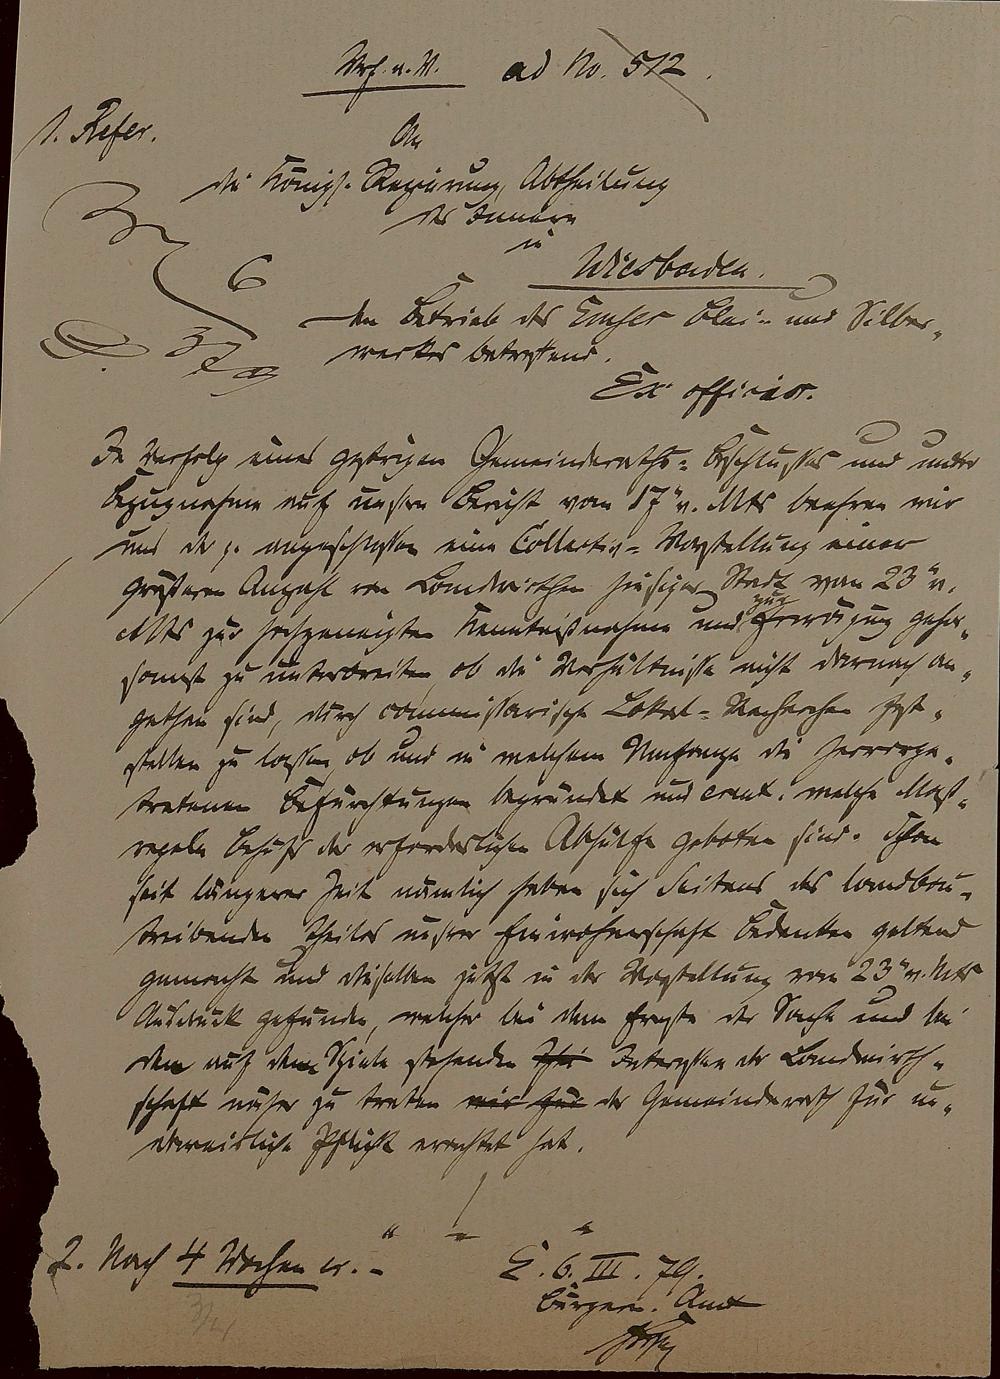 ad No. 512.
1. Refer.
An
die Königl. Regierung, Abtheilung
des Innern
in
Wiesbaden.
6
3 79
den Betrieb des Emser Blei- und Silber-
werkes betreffend.
Ex officio.
In Verfolg eines gestrigen Gemeinderaths-Beschlusses und unter
Bezugnahme auf unsern Bericht vom 17" v. Mts beehren wir
uns die angeschlossene eine Collectiv-Vorstellung einer
größeren Anzahl von Landwirthen hiesiger Stadt vom 23" v.
Mts zur hochgeneigten Kenntnißnahme und zur Erwägung gehor-
samst zu unterbreiten, ob die Verhältnisse nicht darnach an-
gethan sind, durch commissarische Lokal-Recherchen fest-
stellen zu lassen, ob und in welchem Umfange die hervorge-
tretenen Befürchtungen begründet und event. welche Maß-
regeln behufs der erforderlichen Abhülfe geboten sind. Schon
seit längerer Zeit nämlich haben sich Seitens des landbau-
treibenden Theiles unsrer Einwohnerschaft Bedenken geltend
gemacht und dieselben jetzt in der Vorstellung vom 23" v. Mts
Ausdruck gefunden, welcher bei dem Ernste der Sache und bei
den auf dem Spiele stehenden Interessen der Landwirth-
schaft näher zu treten wir für der Gemeinderath für un-
abweisliche Pflicht erachtet hat.
2. Nach 4 Wochen
E. 6. III. 79.
Bürgerm. Amt
3/4